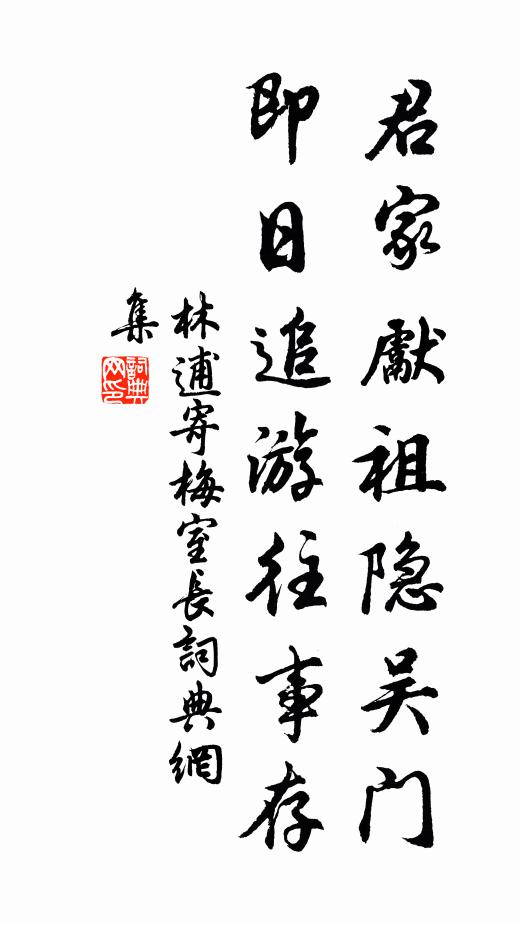 君家献祖隐吴门
即日追游往事存
林逋寄梅室長詞典網
集
詞典
网印